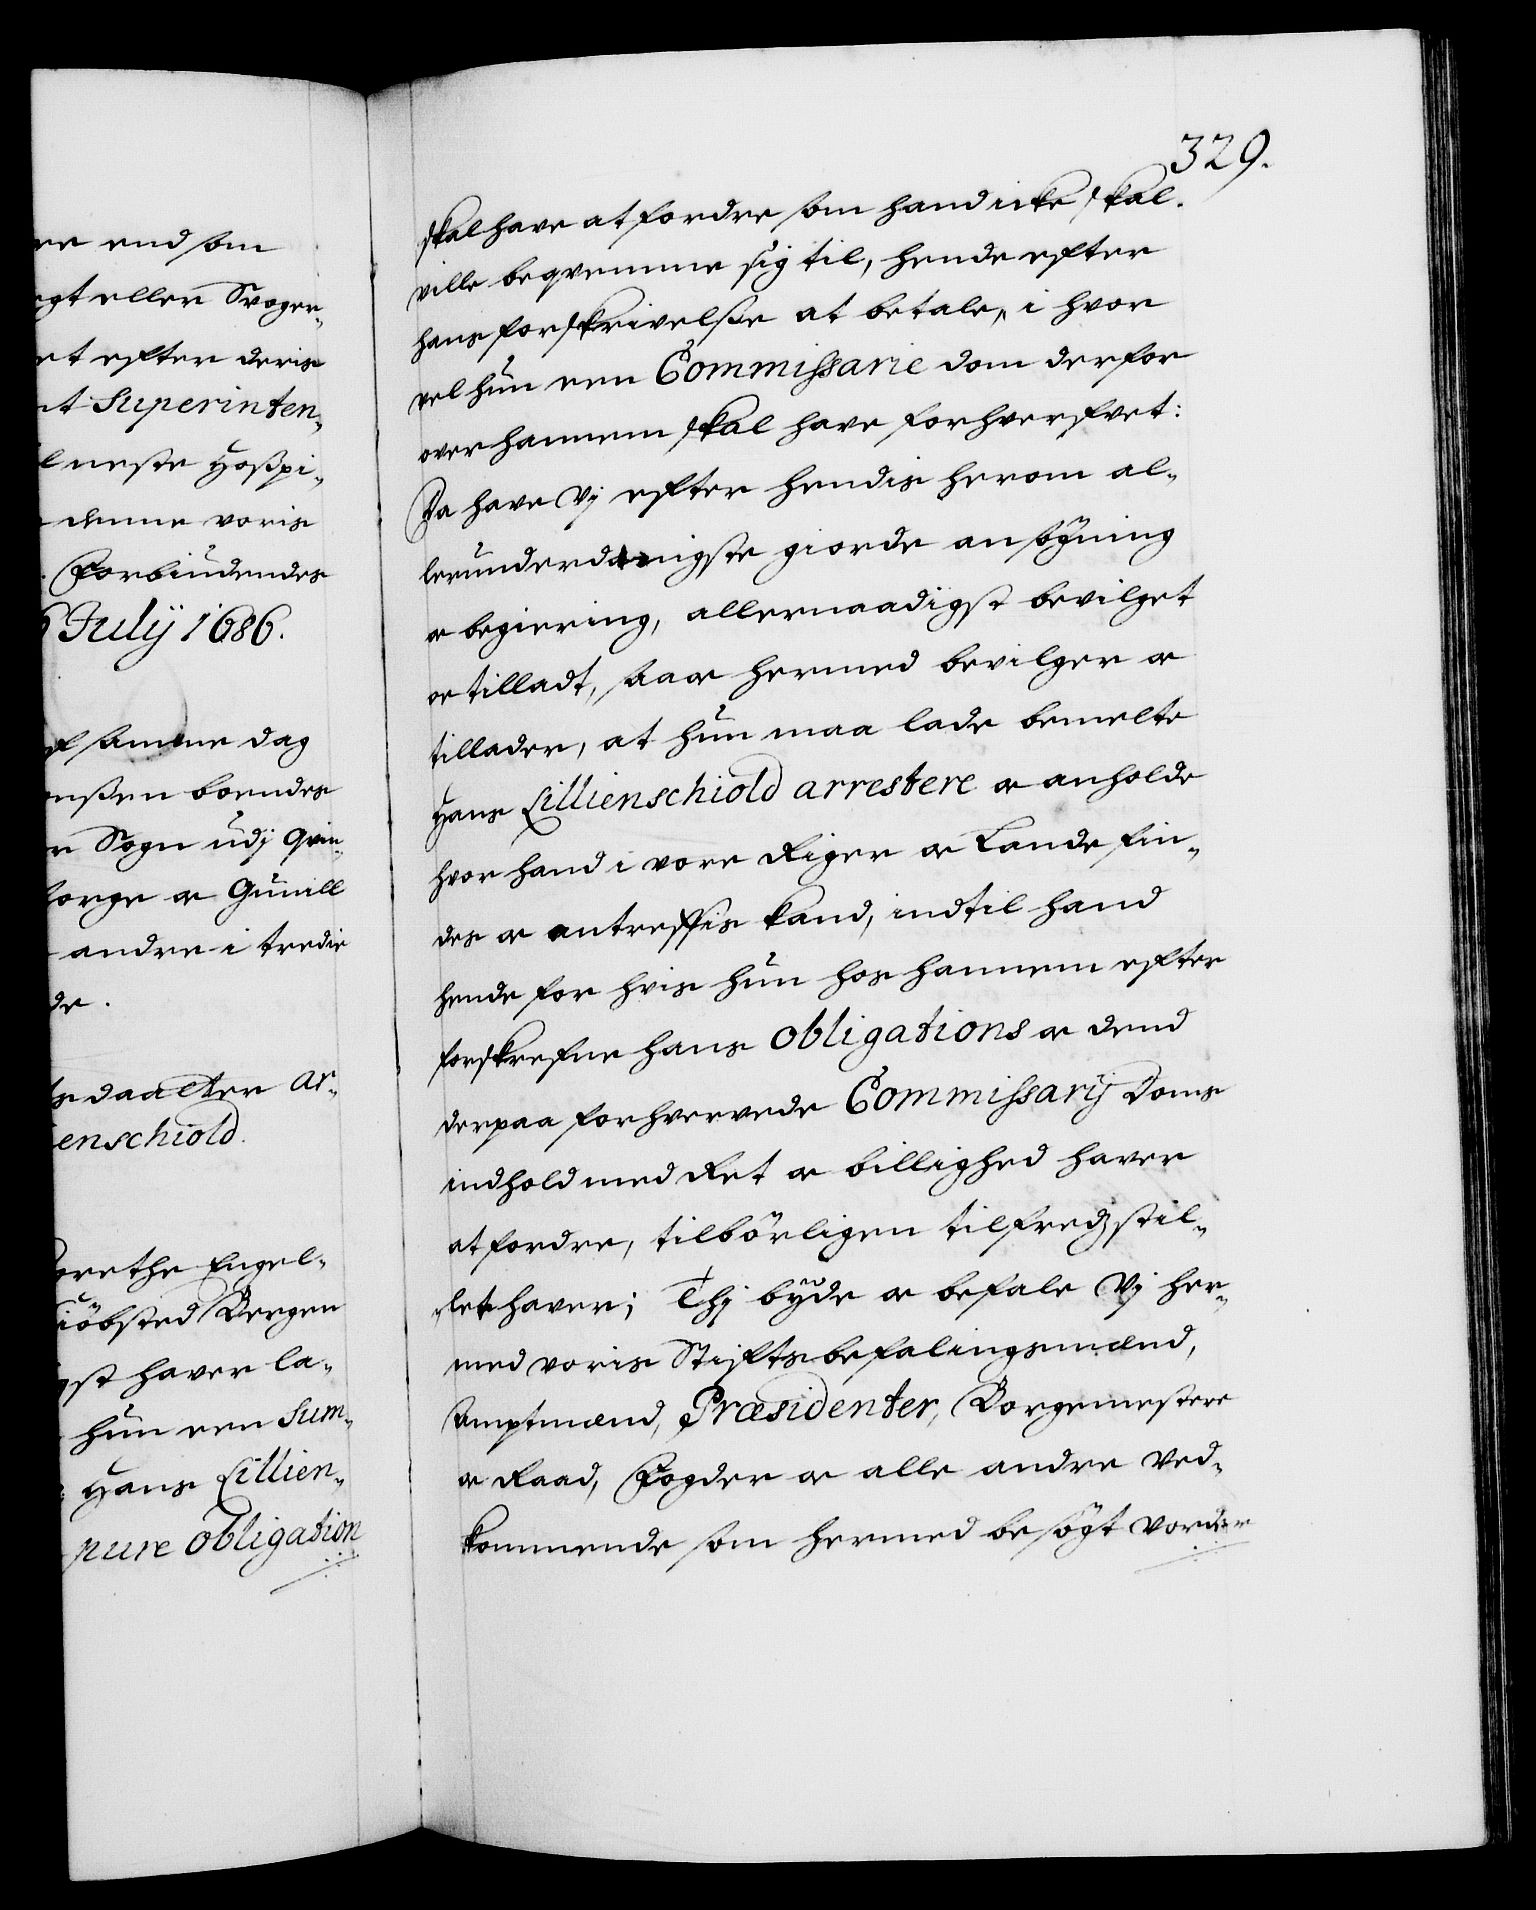 re end som
egt eller Svoger¬
et efter deris
nt Superinten¬
l neste Hoßpi¬
denne voris
Forbiudendes
6 July 1686.
samme dag
nßen boendes
r Sogn udj Qvin¬
orge oc Gunill
andre i tredie
de.
s daatter Ar¬
enschiold.
grethe Engel¬
Kiöbsted Bergen
gst haver la¬
hun een Sum¬
Hans Lillien¬
pure Obligation
329.
skal have at fordre som hand icke skal
ville beqvemme sig til, hende efter
hans forskrivelße at betale, i hvor
vel hun een Commissarie dom derfor
over hannem skal have forhverfvet:
Da have Vj efter hendis herom al¬
lerunderdanigste giorde ansøgning
oc begiering, allernaadigst bevilget
oc tilladt, saa oc hermed bevilger oc
tillader, at hun maa lade bemelte
Hans Lillienschiold arrestere oc anholde
hvor hand i vore Riger oc Lande fin¬
des oc antreffis kand, indtil hand
hende for hvis hun hos hannem efter
forskrefne hans Obligations oc dend
derpaa forhvervede Commissarij Doms
indhold med Ret oc billighed haver
at fordre, tilbörligen tilfredzstil¬
let haver; Thj byde oc befale Vj her¬
med voris Stiftsbefalingsmænd,
Amptmænd, Præsidenter, Borgemestere
oc Raad, Fogder oc alle andre Ved¬
kommende som hermed besøgt vorder